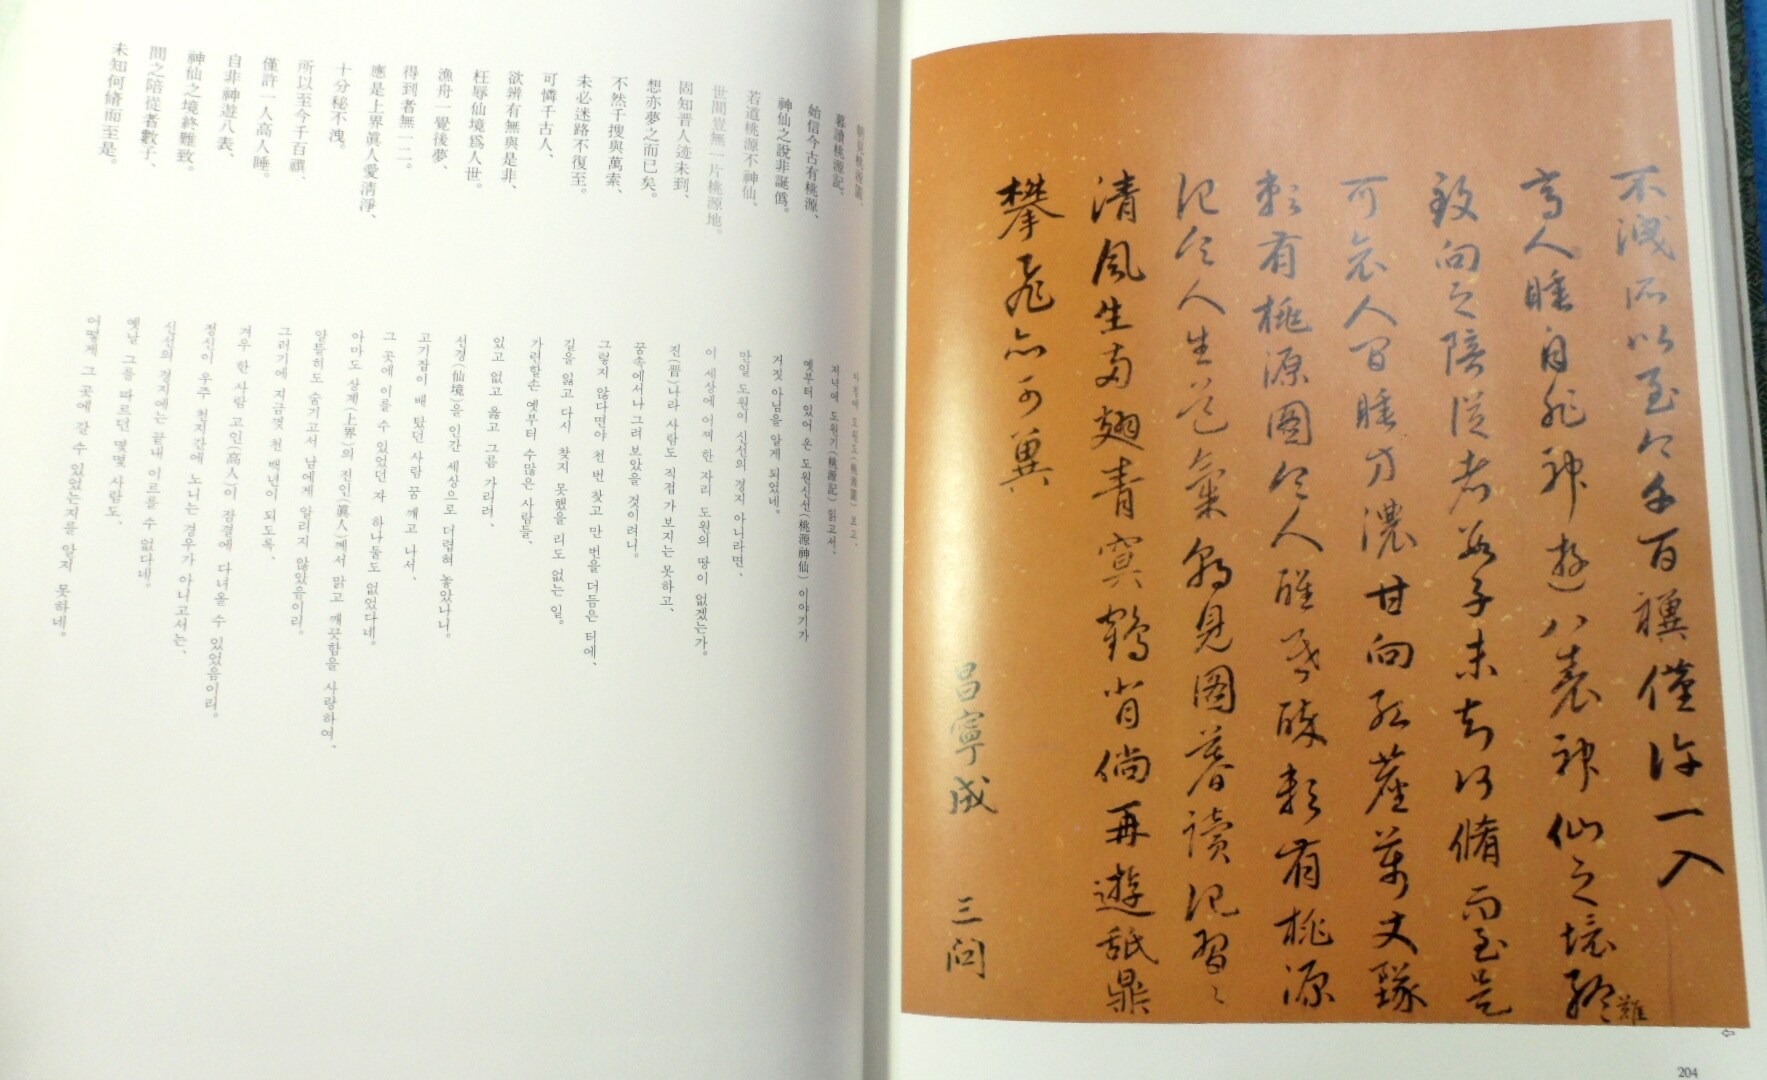 朝見桃源圖、
暮讀桃源記、
始信今古有桃源、
神仙之說非誕僞。
若道桃源不神仙、
世間豈無一片桃源地。
固知晋人迹未到、
想亦夢之而已矣。
不然千搜與萬索、
未必迷路不復至。
可憐千古人、
欲辨有無與是非、
枉辱仙境爲人世。
漁舟一覺後夢、
得到者無一二。
應是上界眞人愛淸淨、
十分秘不洩。
所以至今千百禩、
僅許一人高人睡。
自非神遊八表、
神仙之境終難致。
間之陪從者數子、
未知何脩而至是。
아침에 도원도(桃源圖) 보고、
저녁에 도원기(桃源記) 읽고서、
옛부터 있어 온 도원신선(桃源神仙) 이야기가
거짓 아님을 알게 되었네。
만일 도원이 신선의 경지 아니라면、
이 세상에 어찌 한 자리 도원의 땅이 없겠는가。
진(晋)나라 사람도 직접 가보지는 못하고、
꿈속에서나 그려 보았을 것이려니。
그렇지 않다면야 천 번 찾고 만 번을 더듬은 터에、
길을 잃고 다시 찾지 못했을 리도 없는 일。
가련할손 옛부터 수많은 사람들、
있고 없고 옳고 그름 가리려、
선경(仙境)을 인간 세상으로 더럽혀 놓았나니。
고기잡이 배 탔던 사람 꿈 깨고 나서、
그 곳에 이를 수 있었던 자 하나 둘도 없었다네。
아마도 상계(上界)의 진인(眞人)께서 맑고 깨끗함을 사랑하여、
알뜰히도 숨기고서 남에게 알리지 않았음이리。
그러기에 지금껏 천 백년이 되도록、
겨우 한 사람 고인(高人)이 잠결에 다녀올 수 있었음이리。
정신이 우주 천지간에 노니는 경우가 아니고서는、
신선의 경지에는 끝내 이르를 수 없다네。
옛날 그를 따르던 몇몇 사람도、
어떻게 그 곳에 갈 수 있었는지를 알지 못하네。
不洩所以至今千百禩僅許一入
高人睡自非神遊八表神仙之境終難
致向之陪從者數子未知何脩而至是
可哀人間睡方濃甘向紅塵萬丈墜
頼有桃源圖令人醒昏醉頼有桃源
記令人生道氣朝見圖暮讀記習習
清風生兩翅青冥鶴背倘再遊舐鼎
攀飛亦可冀
昌寧成 三問
204